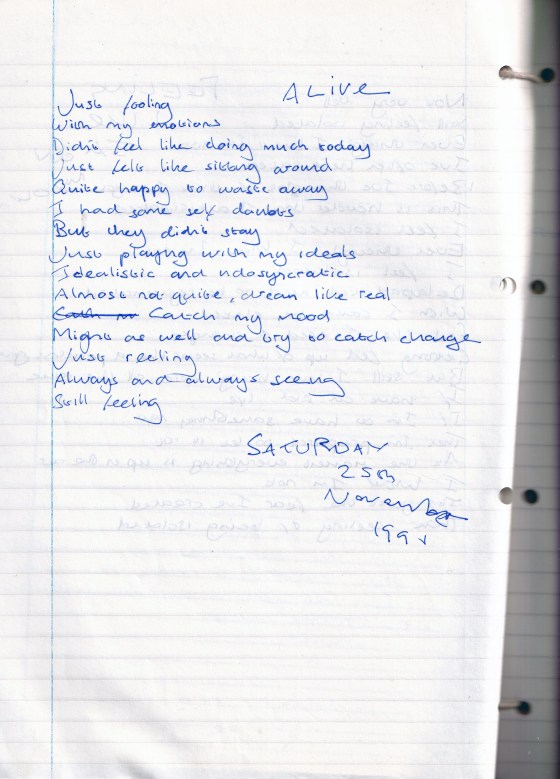 ALIVE
Just fooling
With my emotions
Didn't feel like doing much today
Just felt like sitting around
Quite happy to waste away
I had some self doubts
But they didn't stay
Just playing with my ideals
Idealistic and ndosyncratic
Almost not quite, dream like real
Catch my mood
Might as well and try to catch change
Just reeling
Always and always seeing
Still feeling
SATURDAY
25th
November